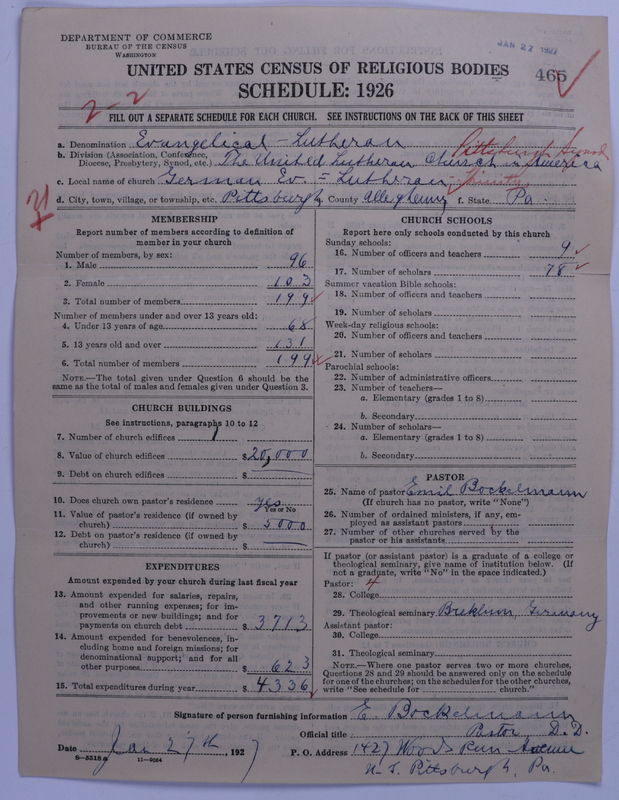 DEPARTMENT OF COMMERCE
BUREAU OF THE CENSUS
WASHINGTON
JAN 27 1927
465
UNITED STATES CENSUS OF RELIGIOUS BODIES
SCHEDULE: 1926
2-2
FILL OUT A SEPARATE SCHEDULE FOR EACH CHURCH. SEE INSTRUCTIONS ON THE BACK OF THIS SHEET
a. Denomination Evangelical - Lutheran
Pittsburgh Synod
b. Division (Association, Conference, Diocese, Presbytery, Synod, etc.) The United Lutheran Church in America
c. Local name of church German Ev. = Lutheran - Trinity
d. City, town, village, or township, etc. Pittsburgh County Allegheny f. State Pa.
MEMBERSHIP
Report number of members according to definition of
member in your church
Number of members, by sex:
1. Male 96
2. Female 103
3. Total number of members 199
Number of members under and over 13 years old:
4. Under 13 years of age 68
5. 13 years old and over 131
6. Total number of members 199
NOTE.—The total given under Question 6 should be the
same as the total of males and females given under Question 3.
CHURCH BUILDINGS
See instructions, paragraphs 10 to 12
7. Number of church edifices 1
8. Value of church edifices $20,000
9. Debt on church edifices $
10. Does church own pastor's residence yes
Yes or No
11. Value of pastor's residence (if owned by
church) $5000
12. Debt on pastor's residence (if owned by
church) $
EXPENDITURES
Amount expended by your church during last fiscal year
13. Amount expended for salaries, repairs,
and other running expenses; for im-
provements or new buildings; and for
payments on church debt $3713
14. Amount expended for benevolences, in-
cluding home and foreign missions; for
denominational support; and for all
other purposes $623
15. Total expenditures during year $4336
CHURCH SCHOOLS
Report here only schools conducted by this church
Sunday schools:
16. Number of officers and teachers 9
17. Number of scholars 78
Summer vacation Bible schools:
18. Number of officers and teachers
19. Number of scholars
Week-day religious schools:
20. Number of officers and teachers
21. Number of scholars
Parochial schools:
22. Number of administrative officers
23. Number of teachers—
a. Elementary (grades 1 to 8)
b. Secondary
24. Number of scholars—
a. Elementary (grades 1 to 8)
b. Secondary
PASTOR
25. Name of pastor Emil Bockelmann
(If church has no pastor, write "None")
26. Number of ordained ministers, if any, em-
ployed as assistant pastors
27. Number of other churches served by the
pastor or his assistants
If pastor (or assistant pastor) is a graduate of a college or
theological seminary, give name of institution below. (If
not a graduate, write "No" in the space indicated.)
Pastor: 4
28. College
29. Theological seminary Breklum, Germany
Assistant pastor:
30. College
31. Theological seminary
NOTE.—Where one pastor serves two or more churches,
Questions 28 and 29 should be answered only on the schedule
for one of the churches; on the schedules for the other churches,
write "See schedule for church."
Signature of person furnishing information E. Bockelmann
Official title Pastor, D.D.
Date Jan 27th, 1927 P. O. Address 1427 Woods Run Avenue
8-5518a 11-9064
N. S. Pittsburgh, Pa.